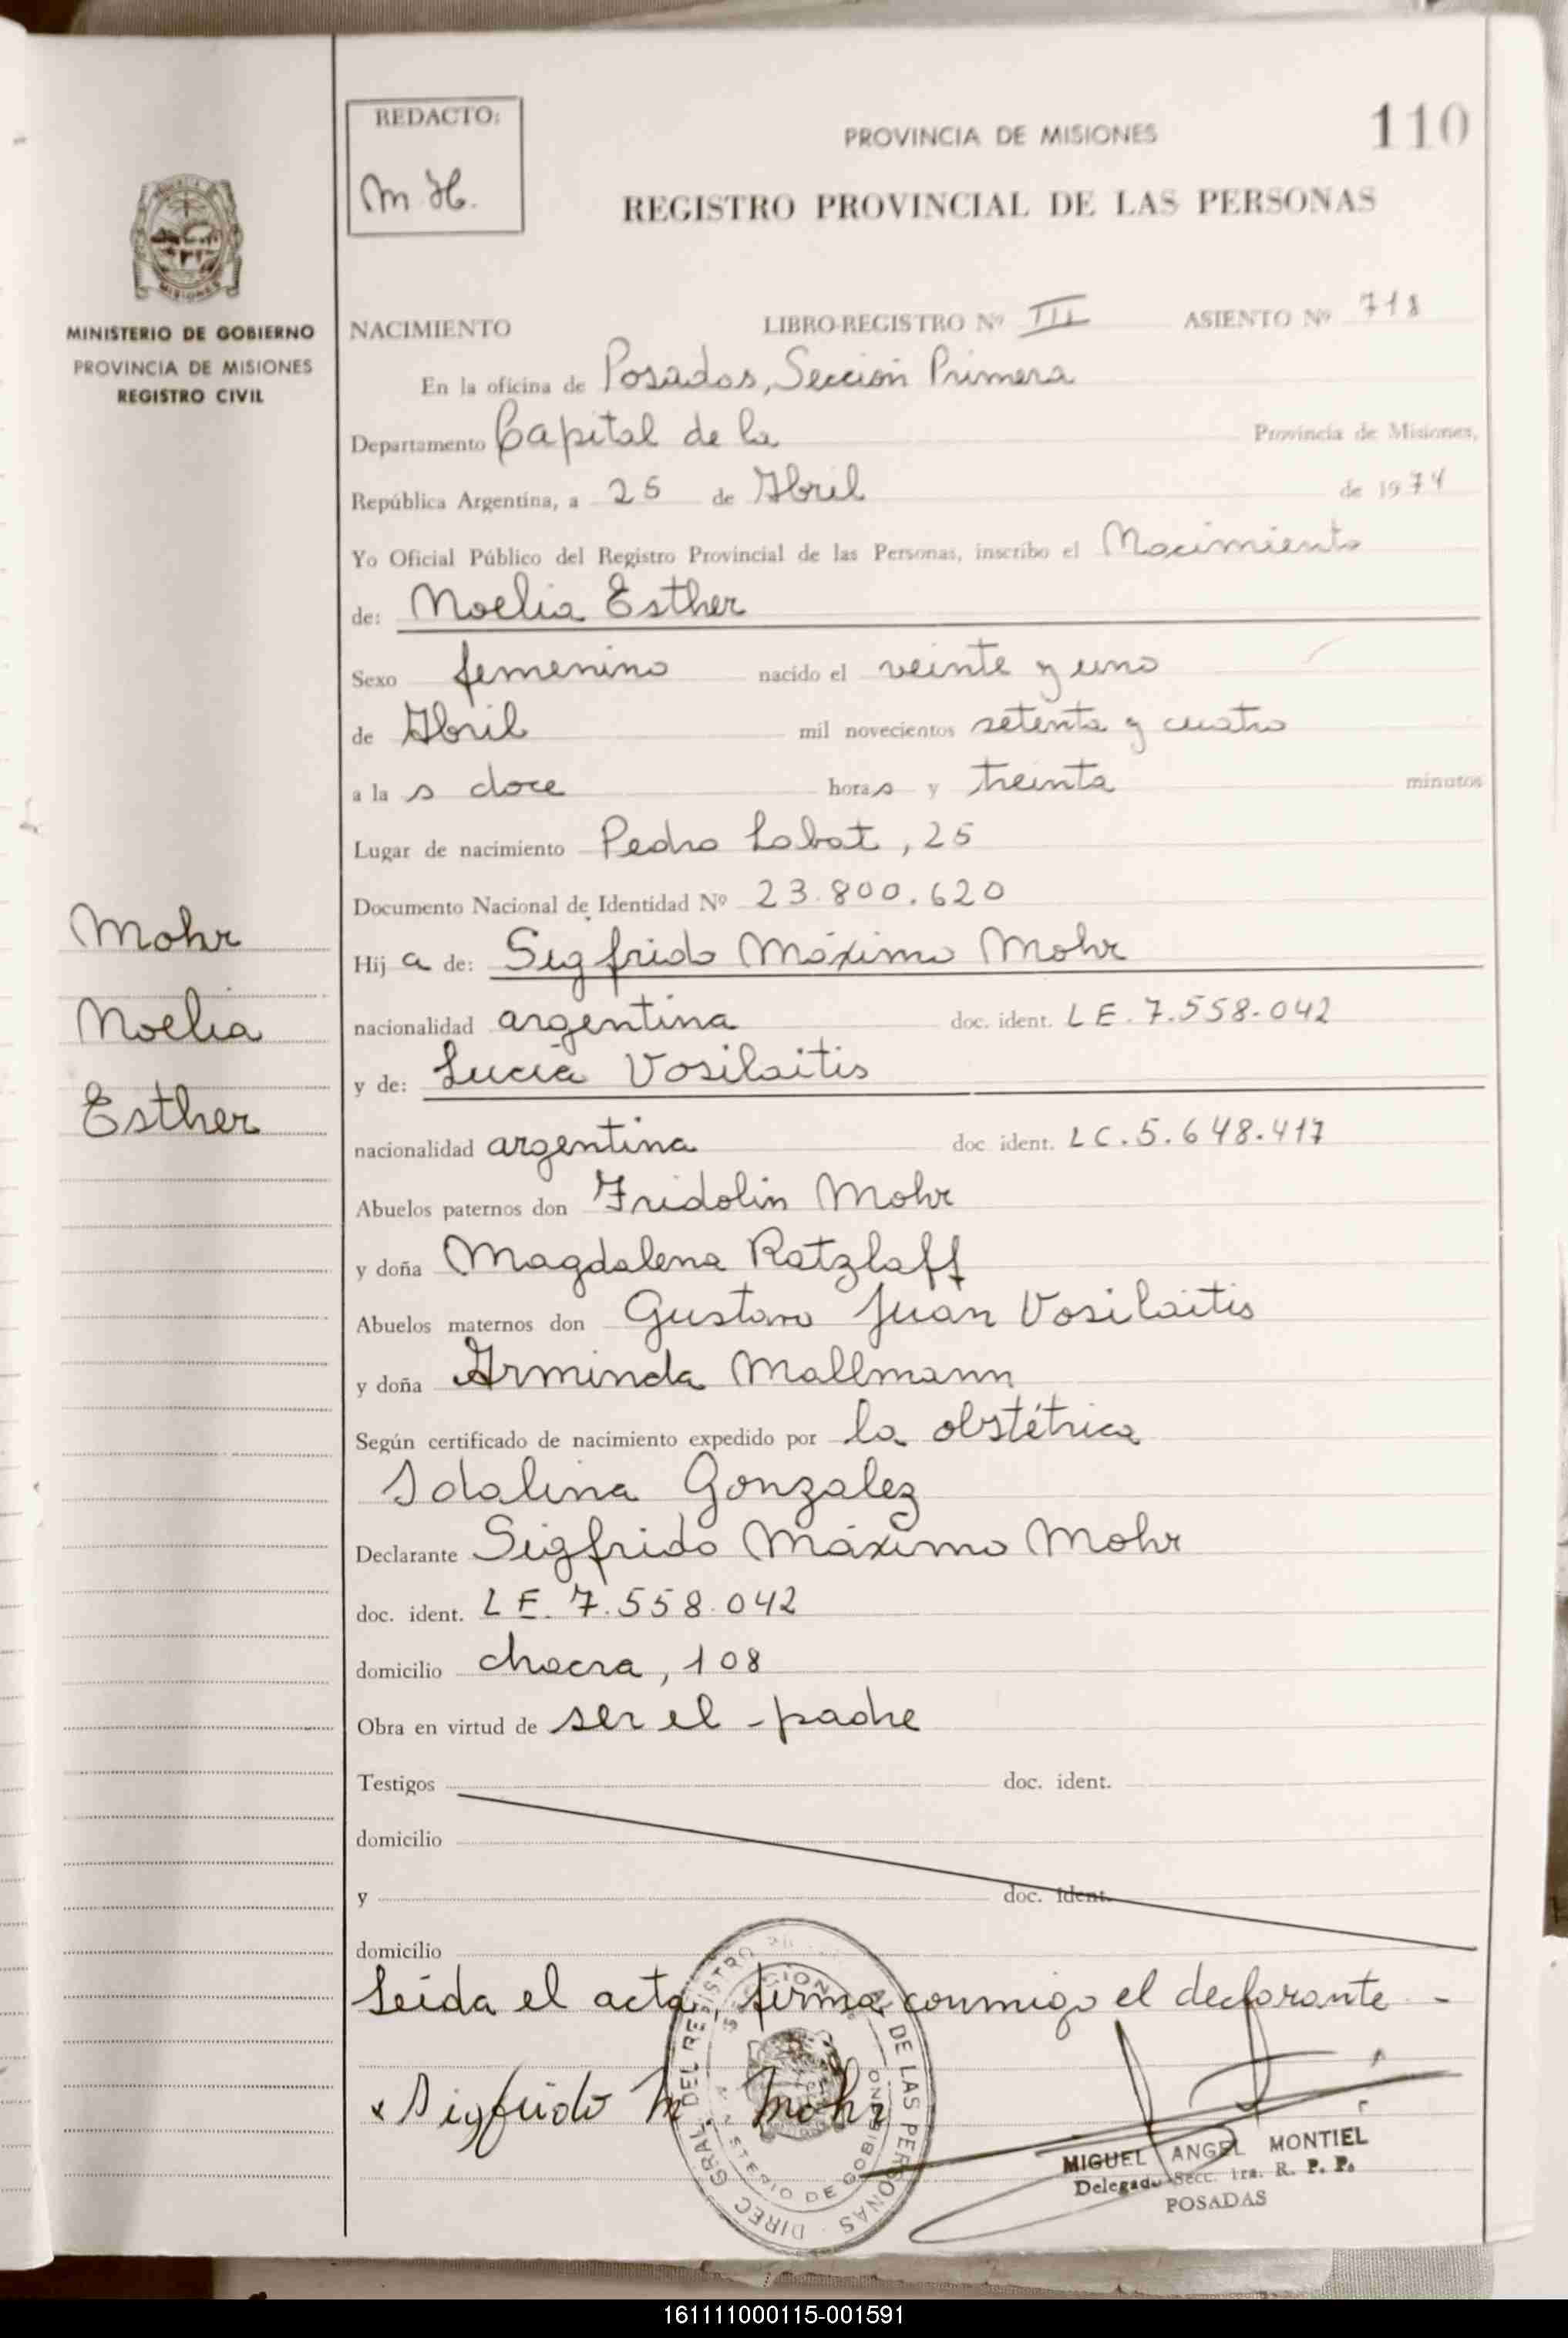 REDACTO:
M H.
PROVINCIA DE MISIONES
110
REGISTRO PROVINCIAL DE LAS PERSONAS
MISIONES
MINISTERIO DE GOBIERNO
PROVINCIA DE MISIONES
REGISTRO CIVIL
NACIMIENTO LIBRO-REGISTRO Nº III ASIENTO Nº 718
En la oficina de Posadas, Sección Primera
Departamento Capital de la Provincia de Misiones,
República Argentina, a 25 de Abril de 1974
Yo Oficial Público del Registro Provincial de las Personas, inscribo el Nacimiento
de: Noelia Esther
Sexo femenino nacido el veinte y uno
de Abril mil novecientos setenta y cuatro
a la s doce horas y treinta minutos
Lugar de nacimiento Pedro Labat, 25
Documento Nacional de Identidad Nº 23.800.620
Mohr
Noelia
Esther
Hij a de: Sigfrido Máximo Mohr
nacionalidad argentina doc. ident. LE. 7.558.042
y de: Lucía Vosilaitis
nacionalidad argentina doc ident. LC. 5.648.417
Abuelos paternos don Fridolin Mohr
y doña Magdalena Ratzlaff
Abuelos maternos don Gustavo Juan Vosilaitis
y doña Arminda Mallmann
Según certificado de nacimiento expedido por la obstétrica
Idalina Gonzalez
Declarante Sigfrido Máximo Mohr
doc. ident. LE. 7.558.042
domicilio chacra, 108
Obra en virtud de ser el padre
Testigos doc. ident.
domicilio
y doc. ident.
domicilio
Leída el acta, firma conmigo el declarante -
x Sigfrido M Mohr
DIREC. GRAL. DEL REGISTRO DE LAS PERSONAS
MINISTERIO DE GOBIERNO
MIGUEL ANGEL MONTIEL
Delegado Secc. 1ra. R. P. P.
POSADAS
161111000115-001591